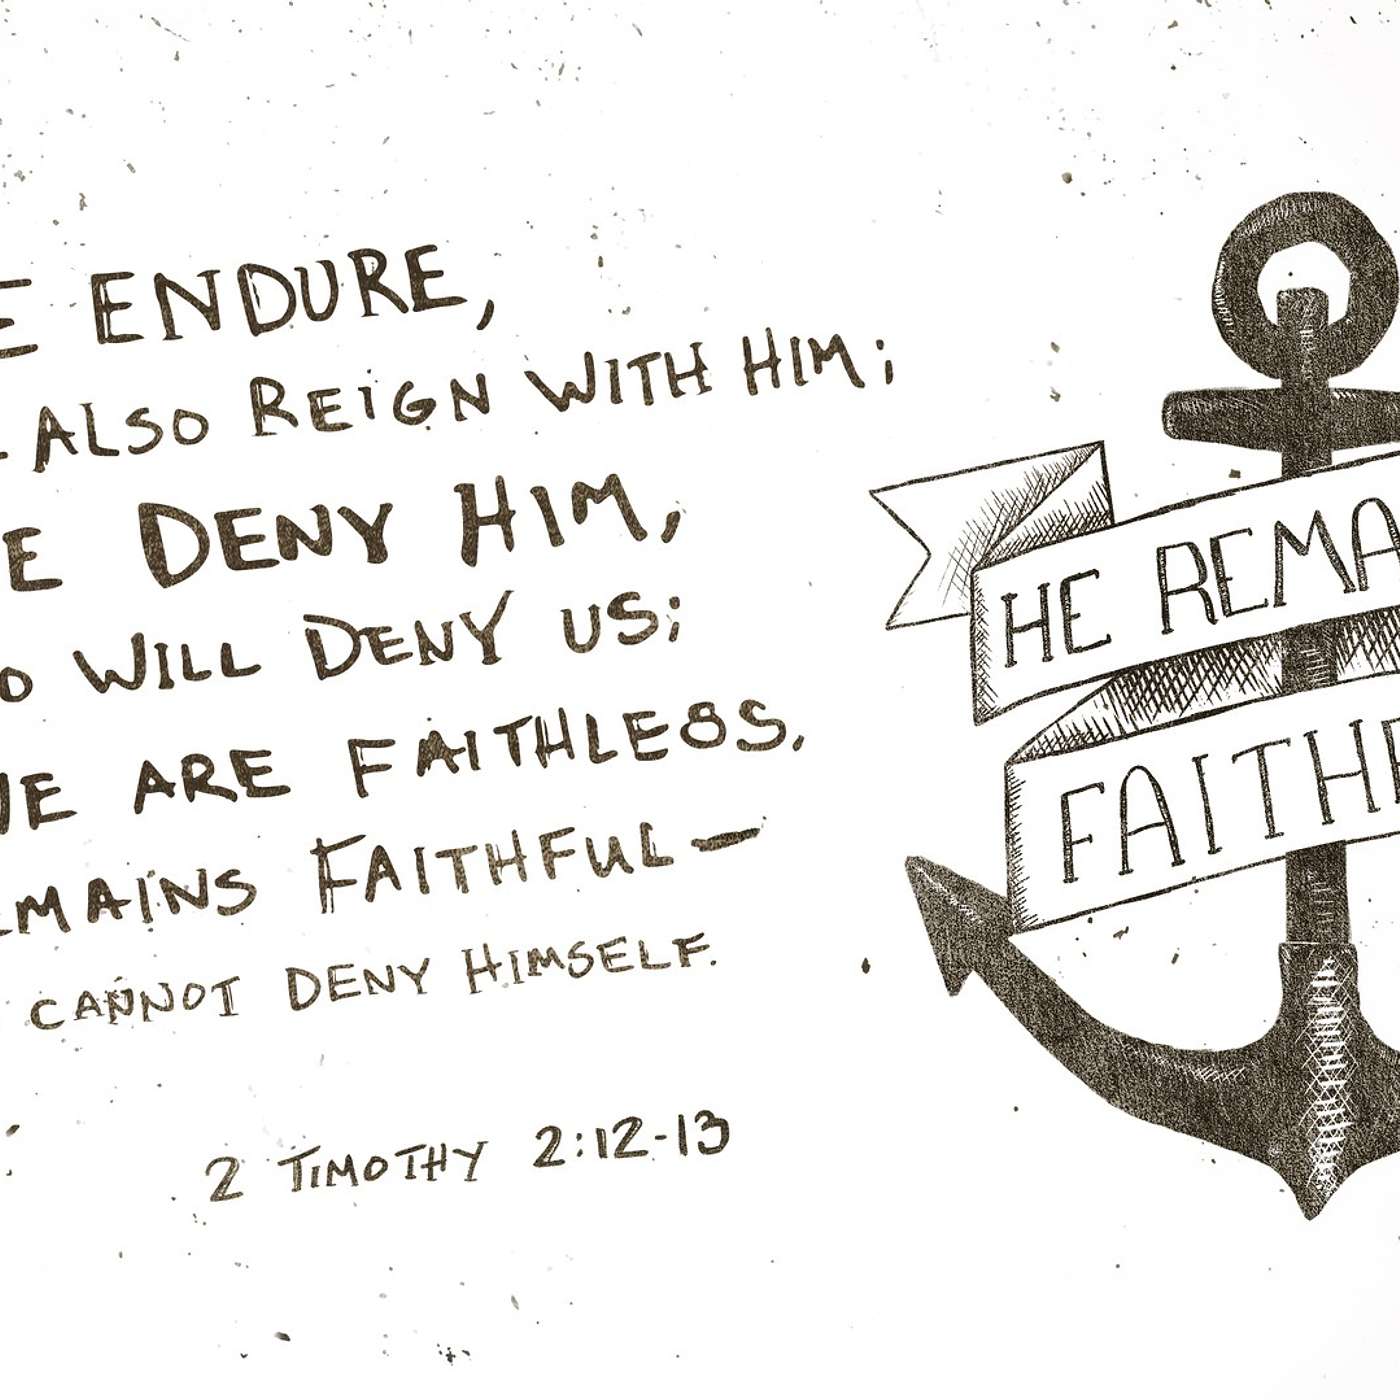 E ENDURE,
ALSO REIGN WITH HIM;
E DENY HIM,
O WILL DENY US;
WE ARE FAITHLESS,
EMAINS FAITHFUL—
CANNOT DENY HIMSELF.
2 TIMOTHY 2:12-13
HE REMA
FAITHF